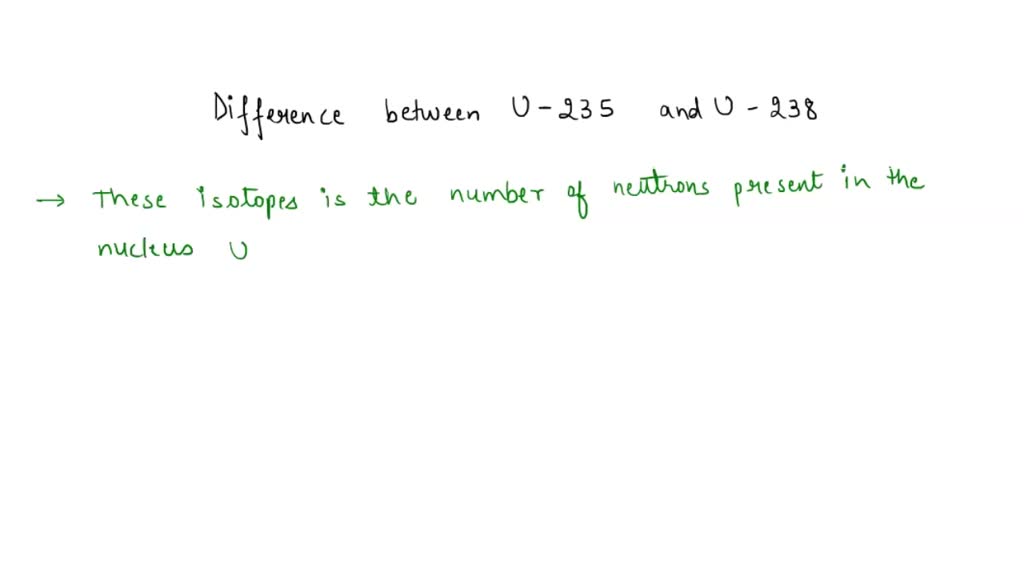 Difference between U - 235 and U - 238
→ These isotopes is the number of neutrons present in the
nucleus U